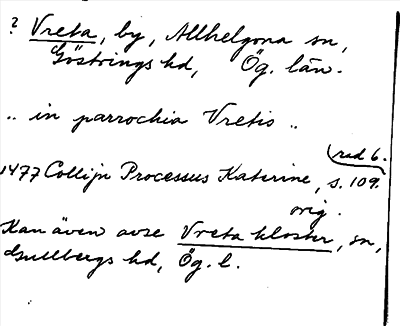 ? Vreta, by, Allhelgona sn,
Göstrings hd, Ög. län.
.. in parrochia Vretis ..
rad 6.
1477 Collijn Processus Katerine, s. 109.
orig.
Kan även avse Vreta kloster, sn,
Gullbergs hd, Ög. l.